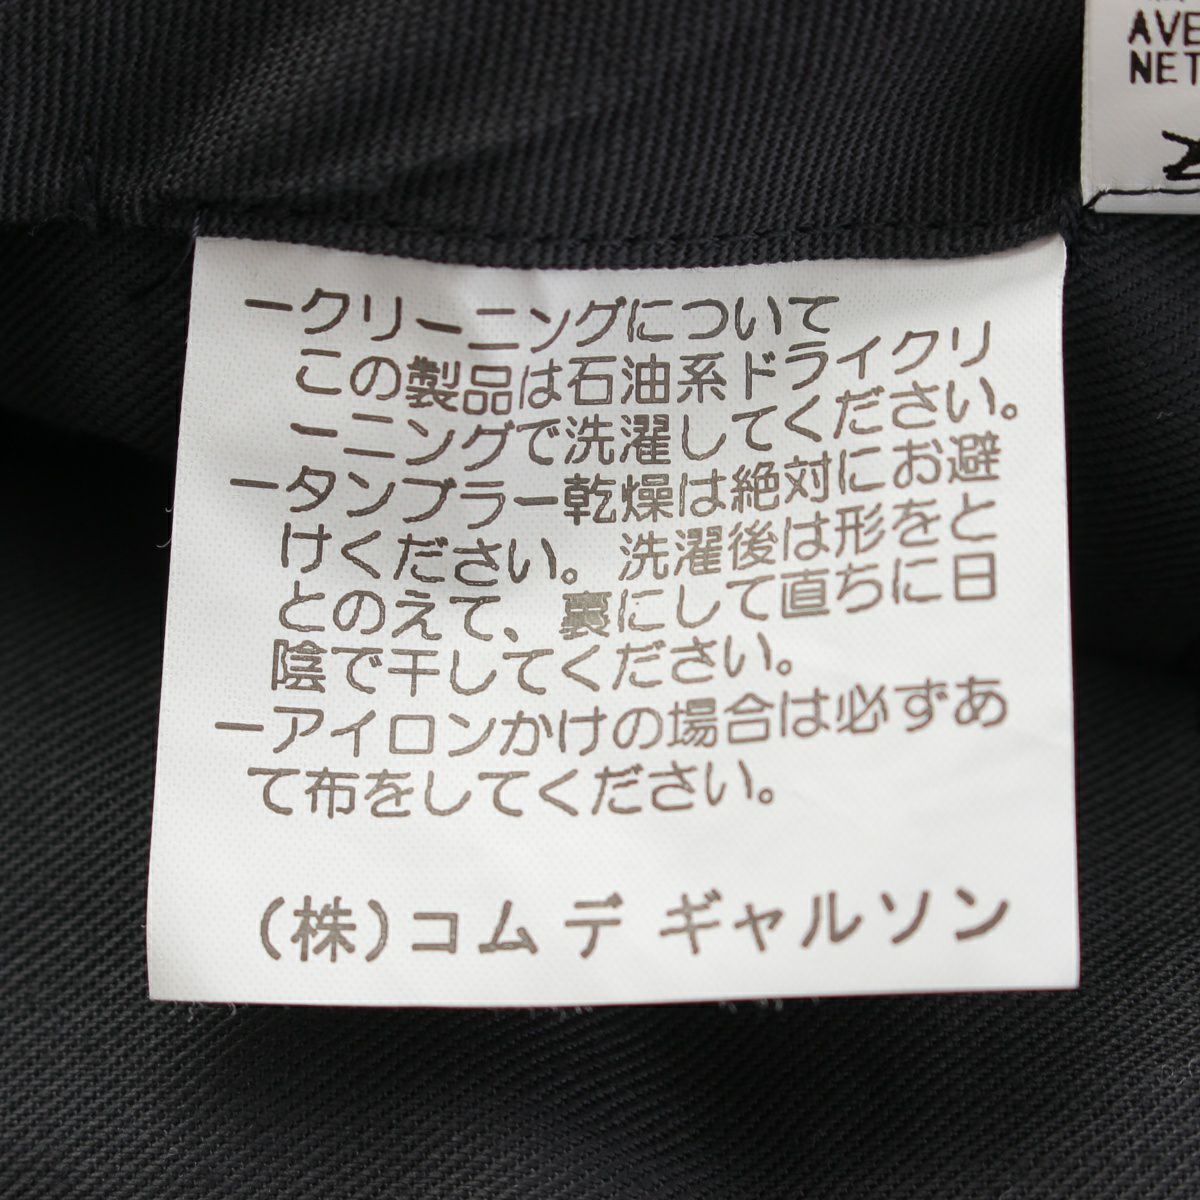 AVE
NET
ークリーニングについて
この製品は石油系ドライクリ
ーニングで洗濯してください。
ータンブラー乾燥は絶対にお避
けください。洗濯後は形をと
とのえて、裏にして直ちに日
陰で干してください。
ーアイロンかけの場合は必ずあ
て布をしてください。
(株)コム デ ギャルソン